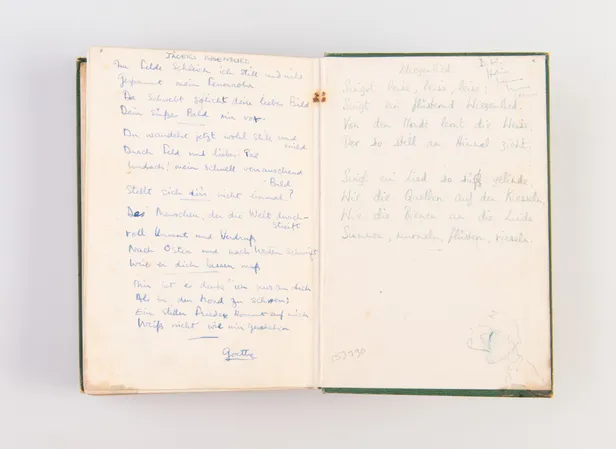 JÄGERS ABENDLIED
Im Felde schleich ich still und wild
Gespannt mein Feuerrohr
Da schwebt so licht dein liebes Bild
Dein süßes Bild mir vor.
Du wandelst jetzt wohl still und
mild
Durch Feld und liebes Tal
Und ach! mein schnell verrauschend
Bild
Stellt sich dir's nicht einmal?
Des Menschen, der die Welt durch-
streift
voll Unmut und Verdruß
Nach Osten und nach Westen schweift
Weil er dich lassen muß
Mir ist es denk' ich nur an dich
Als in den Mond zu sehen;
Ein stiller Friede kommt auf mich
Weiß nicht wie mir geschehen
Goethe
Wiegenlied
Singet leise, leise, leise:
Singt ein flüsternd Wiegenlied.
Von dem Monde lernt die Weise
Der so still am Himmel zieht.
Singt ein Lied so süß gelinde,
Wie die Quellen auf den Kieseln,
Wie die Bienen um die Linde
Summen, murmeln, flüstern, rieseln.
153930